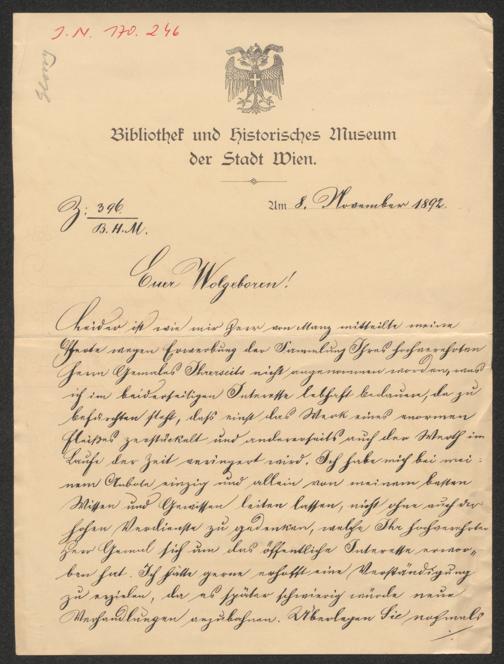 J. N. 170.246
Bibliothek und Historisches Museum
der Stadt Wien.
Z: 396
B.H.M.
Am 8. November 1892.
Euer Wolgeboren!
Leider ist wie mir Herr von Manz mitteilte meine
Offerte wegen Erwerbung der Sammlung Ihres hochverehrten
Herrn Gemales Ihrerseits nicht angenommen worden, was
ich im beiderseitigen Interesse lebhaft bedaure, da zu
befürchten steht, dass einst das Werk eines enormen
Fleißes zerstückelt und andererseits auch der Werth im
Laufe der Zeit veringert wird. Ich habe mich bei mei-
nem Anbote einzig und allein von meinem besten
Wissen und Gewissen leiten lassen, nicht ohne auch der
hohen Verdienste zu gedenken, welche Ihr hochverehrter
Herr Gemal sich um das öffentliche Interesse erwor-
ben hat. Ich hätte gerne erhofft eine Verständigung
zu erzielen, da es später schwierig würde neue
Verhandlungen anzubahnen. Überlegen Sie nochmals